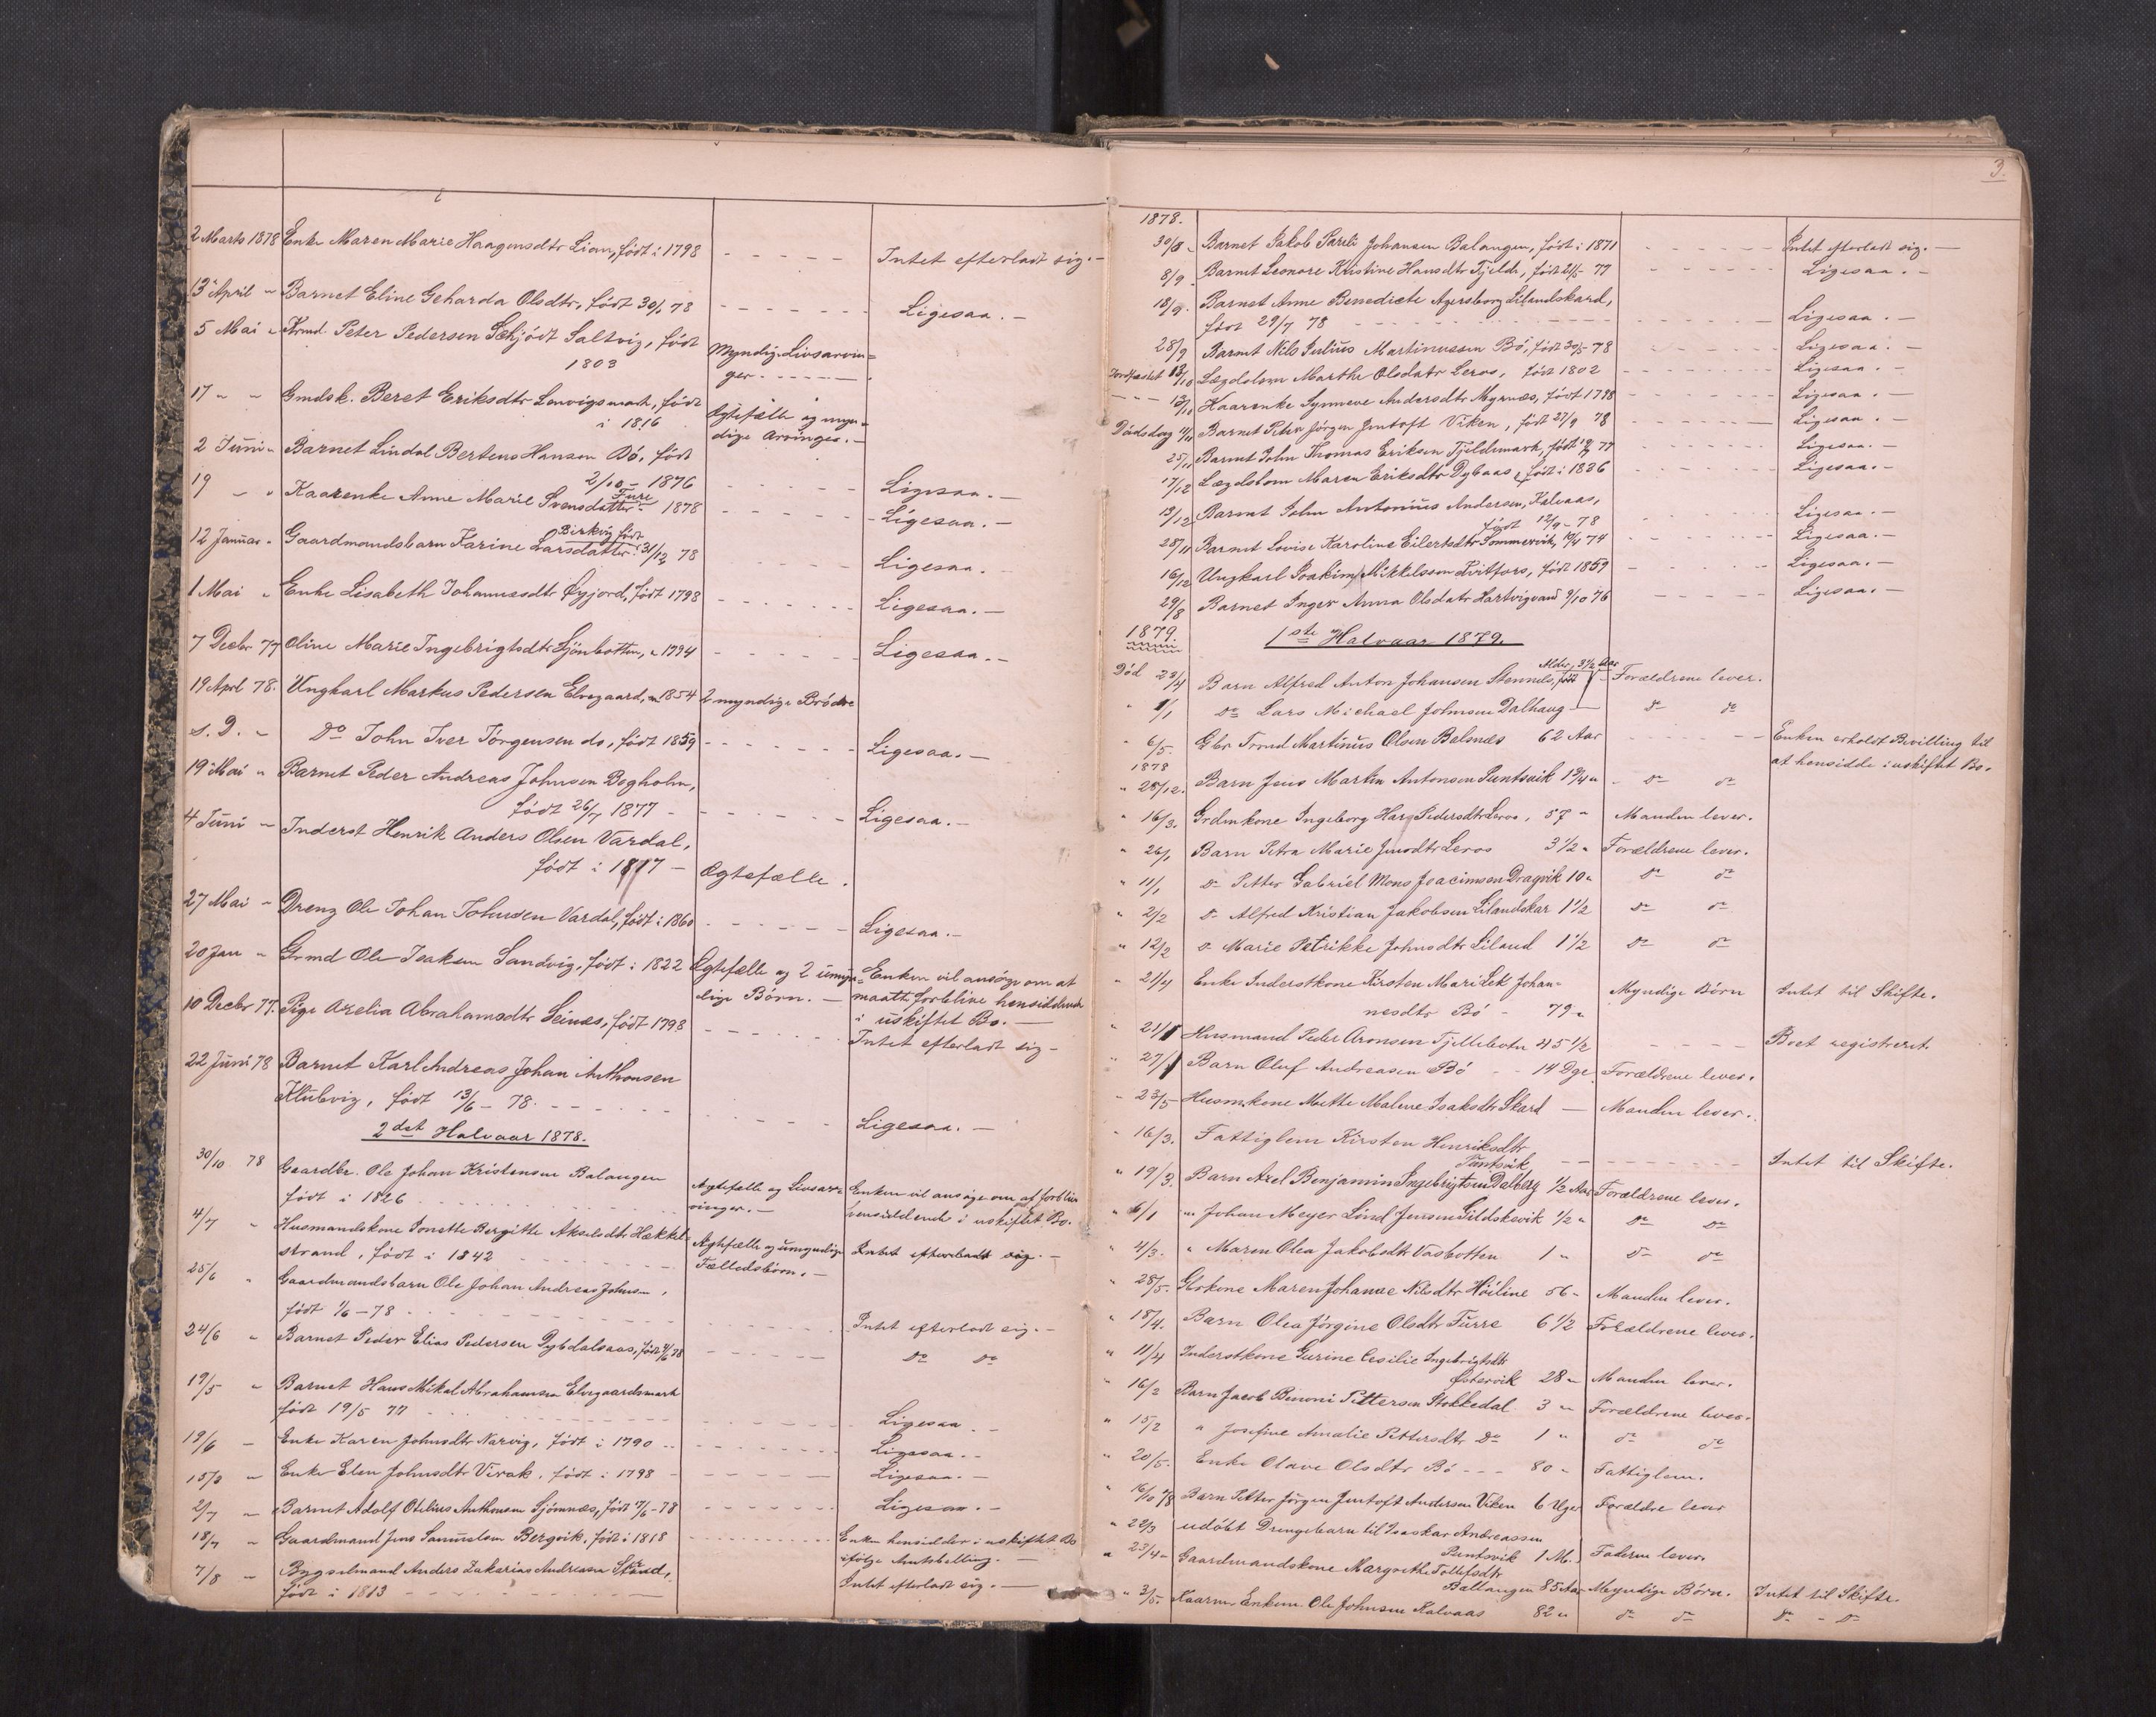 2 Marts 1878 Enke Maren Marie Haagensdtr Lian, født i 1798 - - - - - Intet efterladt sig. -
13 April " Barnet Eline Geharda Olsdtr, født 30/1 78 - - - - - Ligesaa. -
5 Mai " Grmd. Peter Pedersen Schjødt Saltvig, født
1803 Myndige Livsarvin=
ger. - - - -
17 " " Gmdsk. Beret Eriksdtr Lanvigsmark, født
i 1816 Ægtefælle og myn=
dige Arvinger. -
2 Juni " Barnet Lindal Bertens Hansen Bö, født
2/10 - 1876 - - - - Ligesaa. -
19 " " Kaarenke Anne Marie Svensdatter Fure 1878 - - - - Ligesaa. -
12 Januar " Gaardmandsbarn Karine Larsdatter Birkvig født 31/12 78 - - - Ligesaa.
1 Mai " Enke Lisabeth Johannesdtr Øyjord, født 1798 - - - - Ligesaa. -
7 Decbr 77 Oline Marie Ingebrigtsdtr Sjönbotten, " 1794 - - - - Ligesaa. -
19 Aprl 78. Ungkarl Markus Pedersen Elvegaard, " 1854 2 myndige Brödre
s. D. " Do John Iver Jörgensen do, født 1859 - - - - Ligesaa. -
19 Mai " Barnet Peder Andreas Johnsen Bogholm,
født 26/7 1877 - - - - Ligesaa. -
4 Juni " Inderst Henrik Anders Olsen Vardal,
født i 1817 - Ægtefælle.
27 Mai " Dreng Ole Johan Johnsen Vardal, født i 1860 - - - - Ligesaa. -
20 Jan " Grmd Ole Isaksen Sandvig, født i 1822 Ægtefælle og 2 umyn= Enken vil ansöge om at
dige Börn. - maatte forblive hensiddende
i uskiftet Bo. -
10 Decbr 77. Pige Axelia Abrahamsdtr Leinæs, født 1798 - - - - Intet efterladt sig -
22 Juni 78 Barnet Karl Andreas Johan Anthonsen
Klubvig, født 13/6 - 78. - - - - Ligesaa. -
2det Halvaar 1878.
30/10 78 Gaardbr. Ole Johan Kristensen Balangen
født i 1826 Ægtefælle og Livsar= Enken vil ansöge om at forblive
vinger. - hensiddende i uskiftet Bo.
4/7 " Husmandskone Jonette Bergitte Akselsdtr Hækkel=
strand, født i 1842 Ægtefælle og umyndige Intet efterladt sig. -
Fælledsbörn. -
25/6 " Gaardmandsbarn Ole Johan Andreas Johnsen,
født 1/6 - 78 - - - - Intet efterladt sig. -
24/6 " Barnet Peder Elias Pedersen Dybdalsaas, født 4/6 78 - - - - Do Do
19/5 " Barnet Hans Mikal Abrahamsen Elvegaardsmark
født 19/5 77 - - - - Ligesaa -
19/6 " Enke Karen Johnsdtr Narvig, født i 1790 - - - - Ligesaa. -
15/3 " Enke Elen Johnsdtr Virak, født i 1798 - - - - Ligesaa. -
2/7 " Barnet Adolf Otelius Anthonsen Sjömnæs, født 17/6 - 78 - - - - Ligesaa. -
18/7 " Gaardmand Jens Samuelsen Bergvik, født i 1818 - - - - Enken hensidder i uskiftet Bo
ifölge Amtsbevilling. -
7/8 " Bygselmand Anders Zakarias Andreasen Strand,
født i 1813 - - - - Intet efterladt sig. -
3.
1878.
30/8 " Barnet Jakob Pareli Johansen Balangen, født i 1871 - - - - Intet efterladt sig. -
8/9 Barnet Leonore Kristine Hansdtr Tjeldn, født 21/5 77 - - - - Ligesaa. -
18/9. Barnet Anne Benedicte Agersborg Lilandskard,
født 29/7 78 - - - - Ligesaa. -
28/9 Barnet Nils Julius Martinussen Bö, født 30/5 - 78 - - - - Ligesaa. -
Jordfæstet 13/10 Lægdslem Marthe Olsdatr Leros, født 1802 - - - - Ligesaa. -
- - - 13/10 Kaarenke Synneve Andersdtr Myrnæs, født 1798 - - - - Ligesaa. -
Dödsdag 11/11 Barnet Peter Jörgen Jentoft Viken, født 27/9 78 - - - - Ligesaa. -
25/11 Barnet John Thomas Eriksen Tjeldemark, født 77 - - - - Ligesaa. -
17/12 Lægdslem Maren Eriksdtr Dybaas, født i 1836 - - - - Ligesaa. -
13/12 Barnet John Antonius Andersen, Kalvaas,
født 12/9 - 78 - - - - Ligesaa. -
28/11 Barnet Lovise Karoline Eilertsdtr Sommervik, 19/4 74 - - - - Ligesaa. -
16/12 Ungkarl Joakim Mikkelsen Kvitfors, født 1859 - - - - Ligesaa. -
29/8 Barnet Inger Anna Olsdatr Hartvigvand 9/10 76 - - - - Ligesaa. -
1879. 1ste Halvaar 1879.
Död 23/4 Barn Alfred Anton Johansen Stennes, født Alder, 3 1/2 Aar Forældrene lever.
" 1/1 Do Lars Michael Johnsen Dalhaug - Do Do
" 6/5. Gbr Trond Martinus Olsen Belsnæs 62 Aar - - - - Enken erholdt Bevilling til
at hensidde i uskiftet Bo.
1878
" 25/12. Barn Jens Martin Antonsen Puntsvik 1 3/4 " - Do Do
" 16/3. Grdmkone Ingeborg Hars Pedersdtr Leros, 57 " Manden lever.
" 26/1 Barn Petra Marie Jensdtr Leros 3 1/2 " Forældrene lever.
" 11/1 Do Petter Gabriel Mons Joacimsen Dragvik 10 " Do Do
" 2/2 Do Alfred Kristian Jakobsen Lilandskar 1 1/2 Do Do
" 12/2 Do Marie Petrikke Johnsdtr Liland 1 1/2 Do Do
" 21/4 Enke Inderstkone Kirsten Mari Lek Johan=
nesdtr Bö - 79 " Myndige Börn Intet til Skifte.
" 21/1 Husmand Peder Aronsen Tjellebotn 45 1/2 - - - - Boet registreret.
" 27/1 Barn Oluf Andreasen Bö - - 14 Dge Forældrene lever.
" 23/5 Husmkone Mette Malene Isaksdtr Skard - Manden lever.
" 16/3. Fattiglem Kirsten Henriksdtr
Puntsvik - - - - Intet til Skifte.
" 19/3. Barn Axel Benjamin Ingebrigtsen Dalberg 1/2 Aar Forældrene lever.
" 6/1 " Johan Meyer Lind Jensen Sildskevik 1/2 " Do Do
" 4/3. " Maren Olea Jakobsdtr Vasbotten 1 " Do Do
" 28/5. Gbrkone Maren Johanne Nilsdtr Höiline 56 " Manden lever.
" 18/4. Barn Olea Jörgine Olsdtr Furre 6 1/2 Forældrene lever.
" 11/4 Inderstkone Gurine Cesilie Ingebrigtsdtr
Østervik 28 " Manden lever.
" 16/2 Barn Jacob Benoni Pettersen Stokkedal 3 " Forældrene lever.
" 15/2 " Josefine Amalie Pettersdtr Do 1 " Do Do
" 20/5. Enke Olave Olsdtr Bö - - - 80 " Fattiglem.
" 16/10 78 Barn Petter Jörgen Jentoft Andersen Viken 6 Uger Forældre lever
" 22/3 udöbt Drengebarn til Isaskar Andreassen
Puntsvik 1 M. Faderen lever.
" 23/4 - Gaardmandskone Margrethe Tollefsdtr
Ballangen 85 Aar Myndige Börn. Intet til Skifte.
" 3/5. Kaarm Enkem Ole Johnsen Kalvaas 82 " Do Do Do - Do